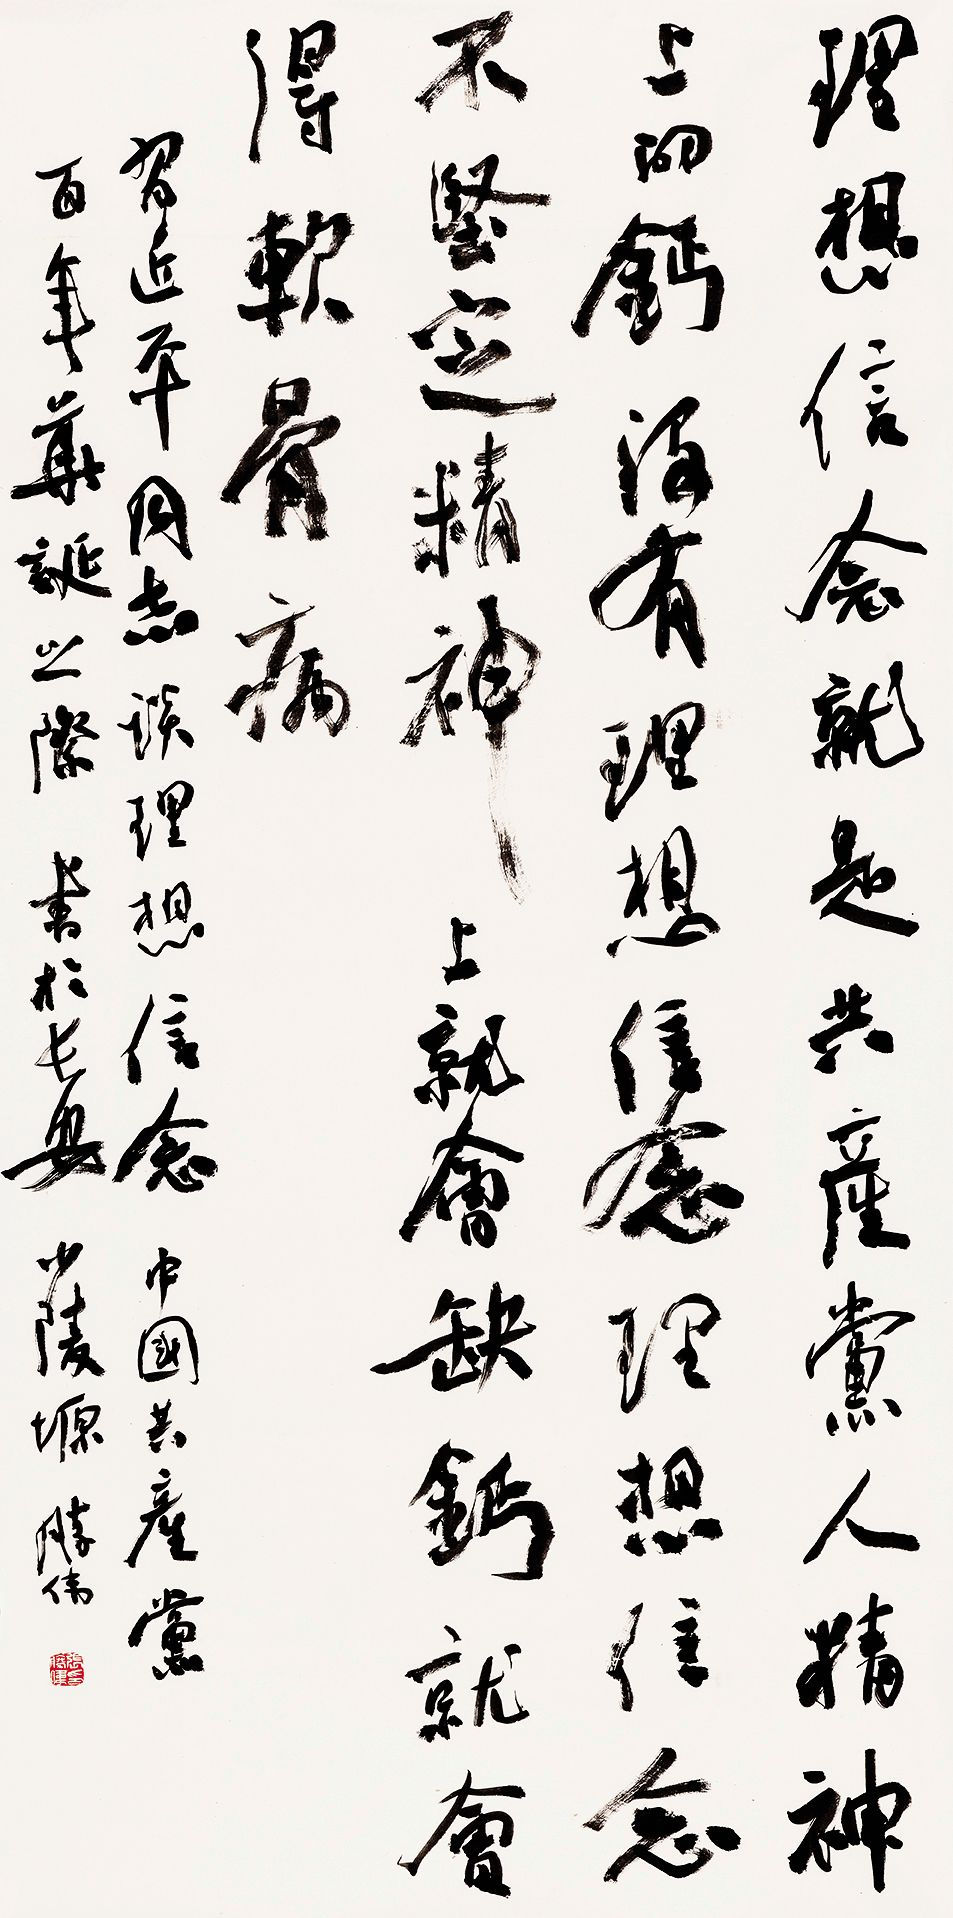 理想信念就是共產黨人精神
上的鈣沒有理想信念理想信念
不堅定精神上就會缺鈣就會
得軟骨病
習近平同志談理想信念中國共產黨
百年華誕之際書於長安少陵塬勝偉